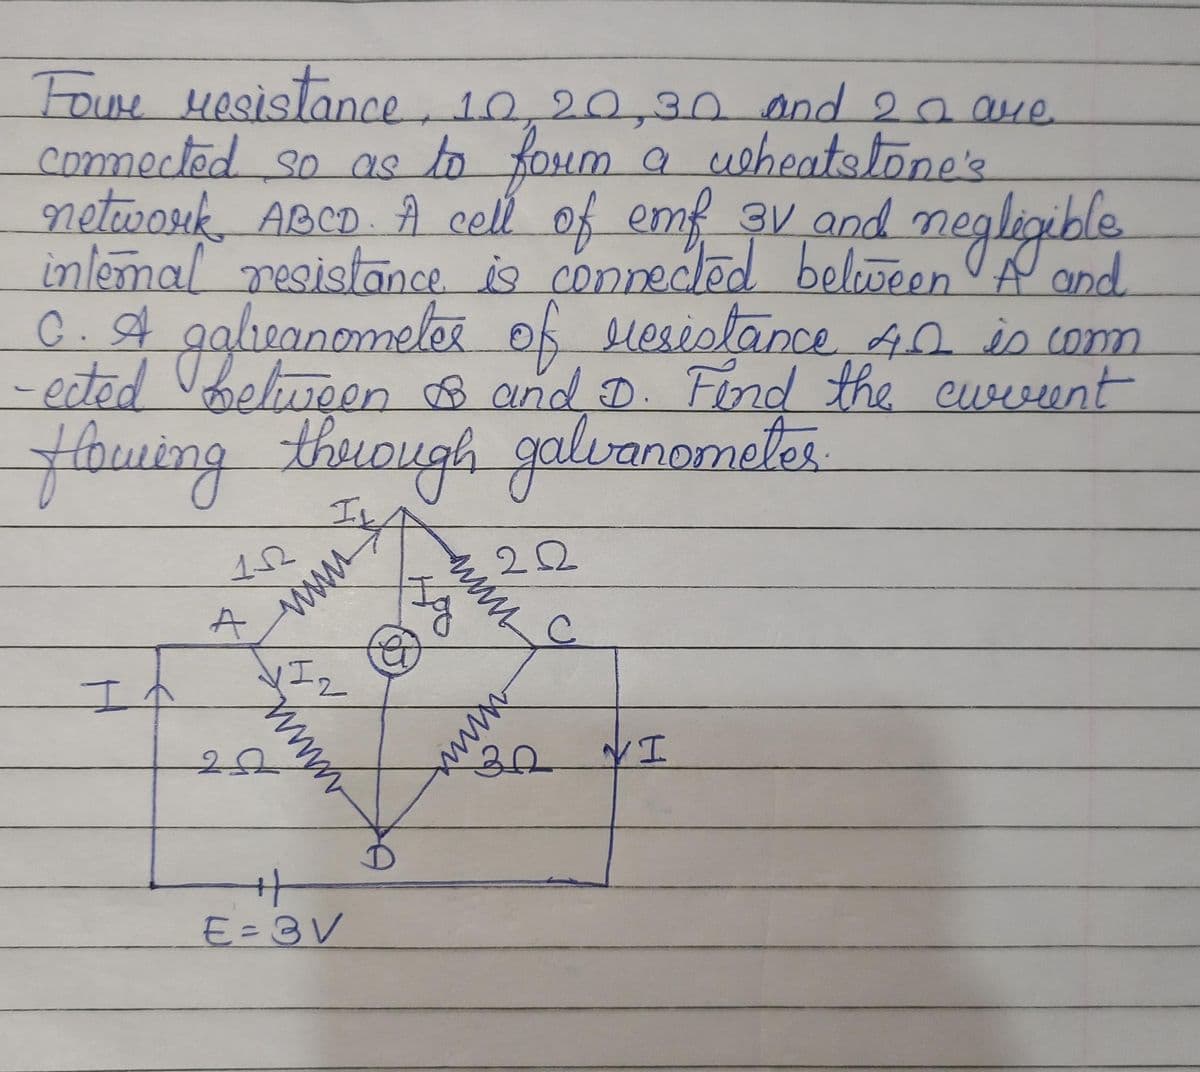 Four resistance, 1Ω, 2Ω, 3Ω and 2Ω are
connected so as to form a wheatstone's
network ABCD. A cell of emf 3V and negligible
internal resistance is connected between A and
C. A galvanometer of resistance 4Ω is conn
-ected between B and D. Find the current
flowing through galvanometer.
I1
1Ω
2Ω
Ig
A
C
G
I2
I
2Ω
3Ω
I
D
E = 3V